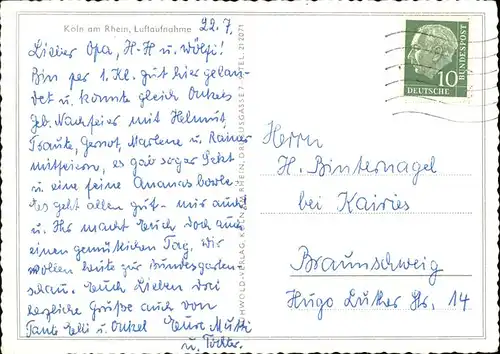 Köln am Rhein, Luftaufnahme
22.7.
Lieber Opa, H-H u. Wölfi!
Bin per 1. Kl. gut hier gelan-
det u. konnte gleich Onkels
Geb. Nachfeier mit Helmut
Traute, Gernot, Marlene u. Rainer
mitfeiern, es gab sogar Sekt
u. eine feine Ananasbowle.
Es geht allen gut - mir auch
u. Ihr macht Euch doch auch
einen gemütlichen Tag. Wir
wollen heute zur Bundesgarten-
schau. Euch Lieben drei
herzliche Grüße auch von
Tante Elli u. Onkel Eure Mutti
u. Tochter.
KÖLN AM RHEIN, DRUSUSGASSE 7 TEL. 212071
10
DEUTSCHE
BUNDESPOST
Herrn
H. Binternagel
bei Kairies
Braunschweig
Hugo Luther Str. 14